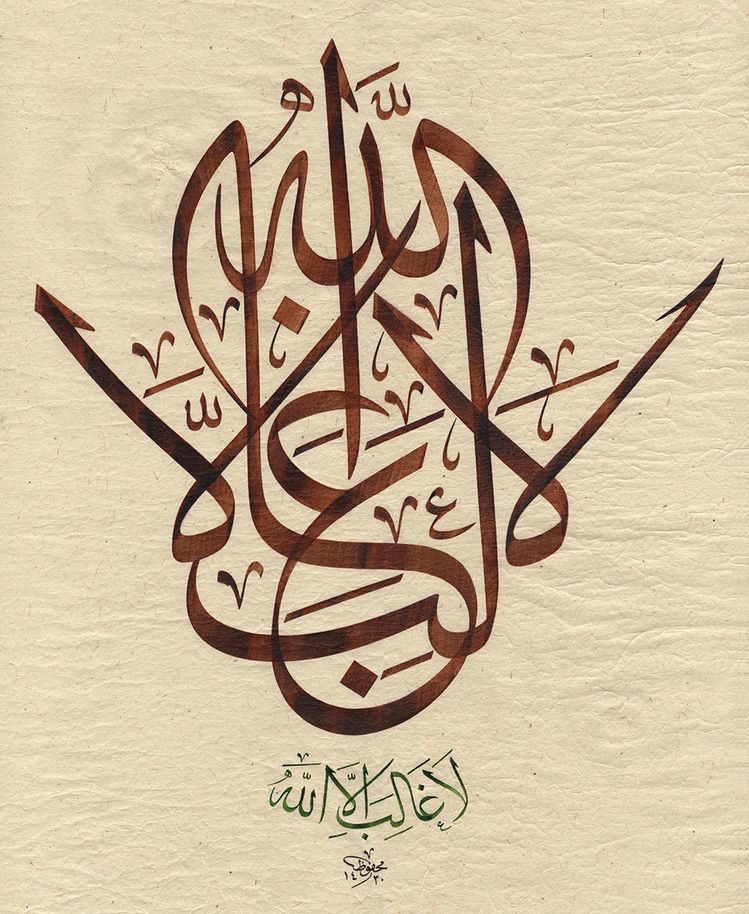 لَا غَالِبَ إِلَّا اللَّهُ
لَا غَالِبَ اِلَّا اللَّهُ
محفوظ
١٤٣٠